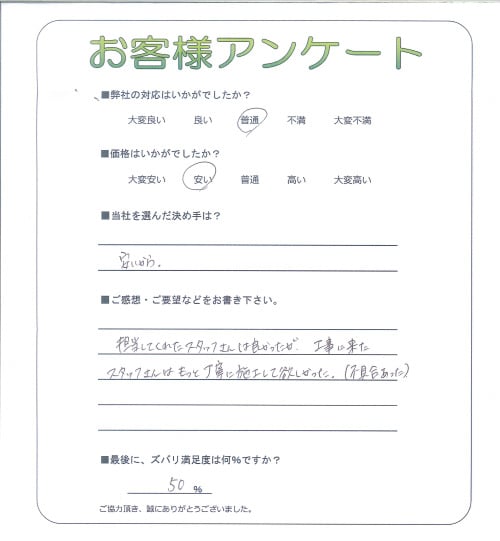 お客様アンケート
■弊社の対応はいかがでしたか？
大変良い 良い 普通 不満 大変不満
■価格はいかがでしたか？
大変安い 安い 普通 高い 大変高い
■当社を選んだ決め手は？
安いから。
■ご感想・ご要望などをお書き下さい。
担当してくれたスタッフさんは良かったが、工事に来た
スタッフさんはもっと丁寧に施工して欲しかった。(不具合あった)
■最後に、ズバリ満足度は何％ですか？
50 %
ご協力頂き、誠にありがとうございました。